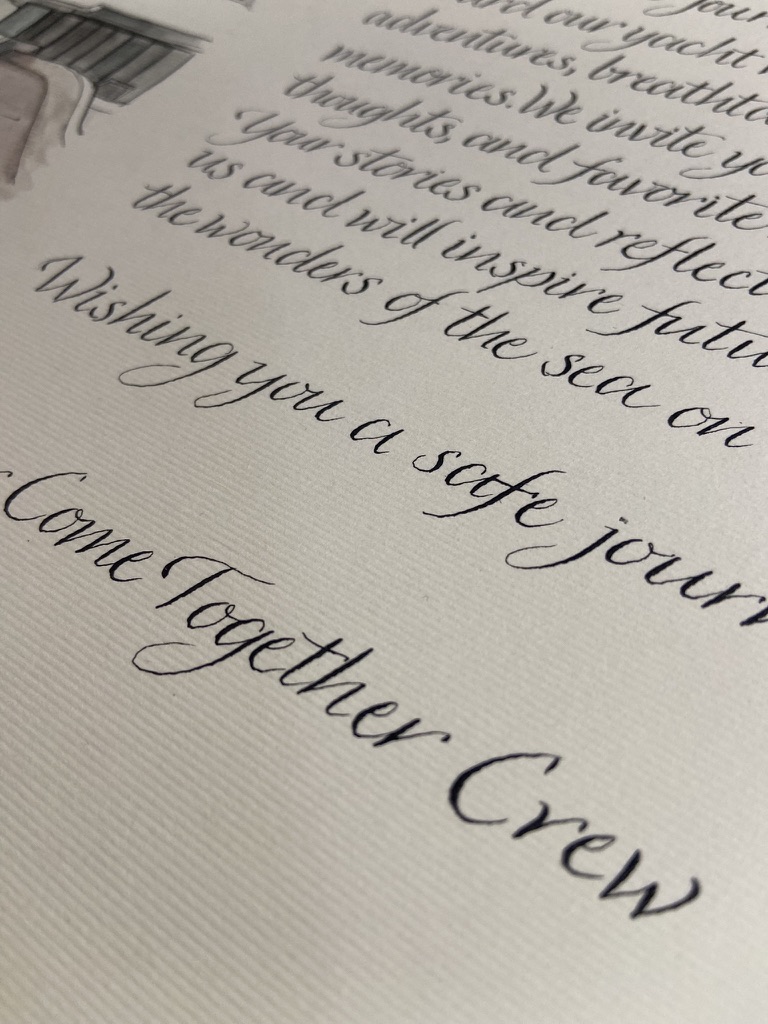 our yacht
adventures,
memories. We invite
thoughts, and favorite
Your stories and
us and will inspire
the wonders of the sea on
Wishing you a safe
Come Together Crew